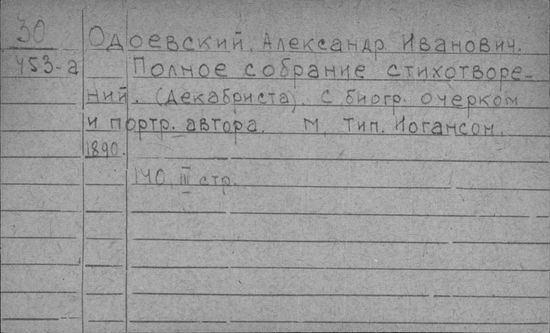 30
453-а
Одоевский, Александр Иванович.
Полное собрание стихотворе-
ний. (Декабриста). С биогр. очерком
и портр. автора. М, тип. Иогансон.
1890.
140, III стр.